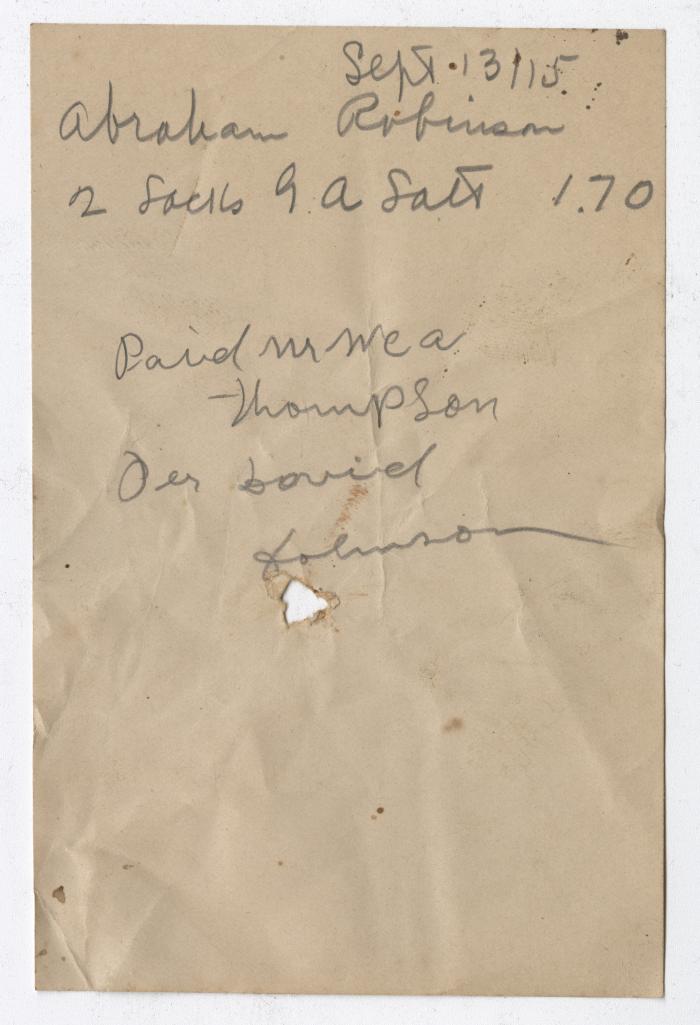 Sept 13/15
Abraham Robinson
2 Sacks G A Salt 1.70
Paid Mr Mc a
Thompson
Per David
Johnson